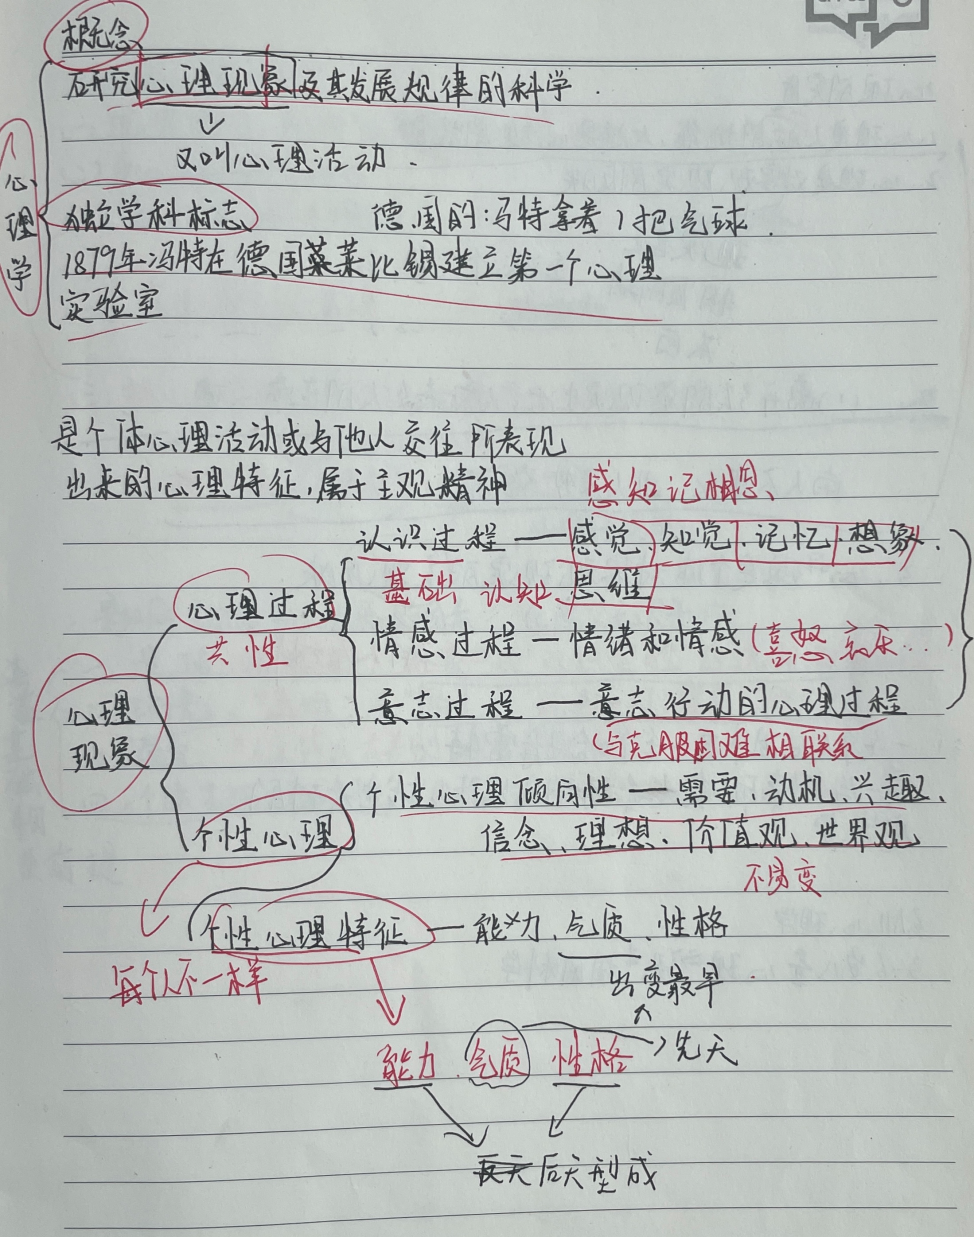 概念
研究心理现象及其发展规律的科学.
又叫心理活动.
心理学
独立学科标志 德国的冯特拿着1把气球.
1879年冯特在德国莱比锡建立第一个心理
实验室
是个体心理活动或与他人交往所表现
出来的心理特征,属于主观精神
感知记相思、
认识过程——感觉、知觉、记忆、想象、
基础 认知、思维
心理过程
共性
情感过程—情绪和情感(喜怒哀乐...)
心理
现象
意志过程——意志行动的心理过程
(与克服困难相联系
个性心理倾向性——需要、动机、兴趣、
个性心理
信念、理想、价值观、世界观
不易变
个性心理特征—能力、气质、性格
每个人不一样
出变最早
能力 气质 性格 先天
后天型成